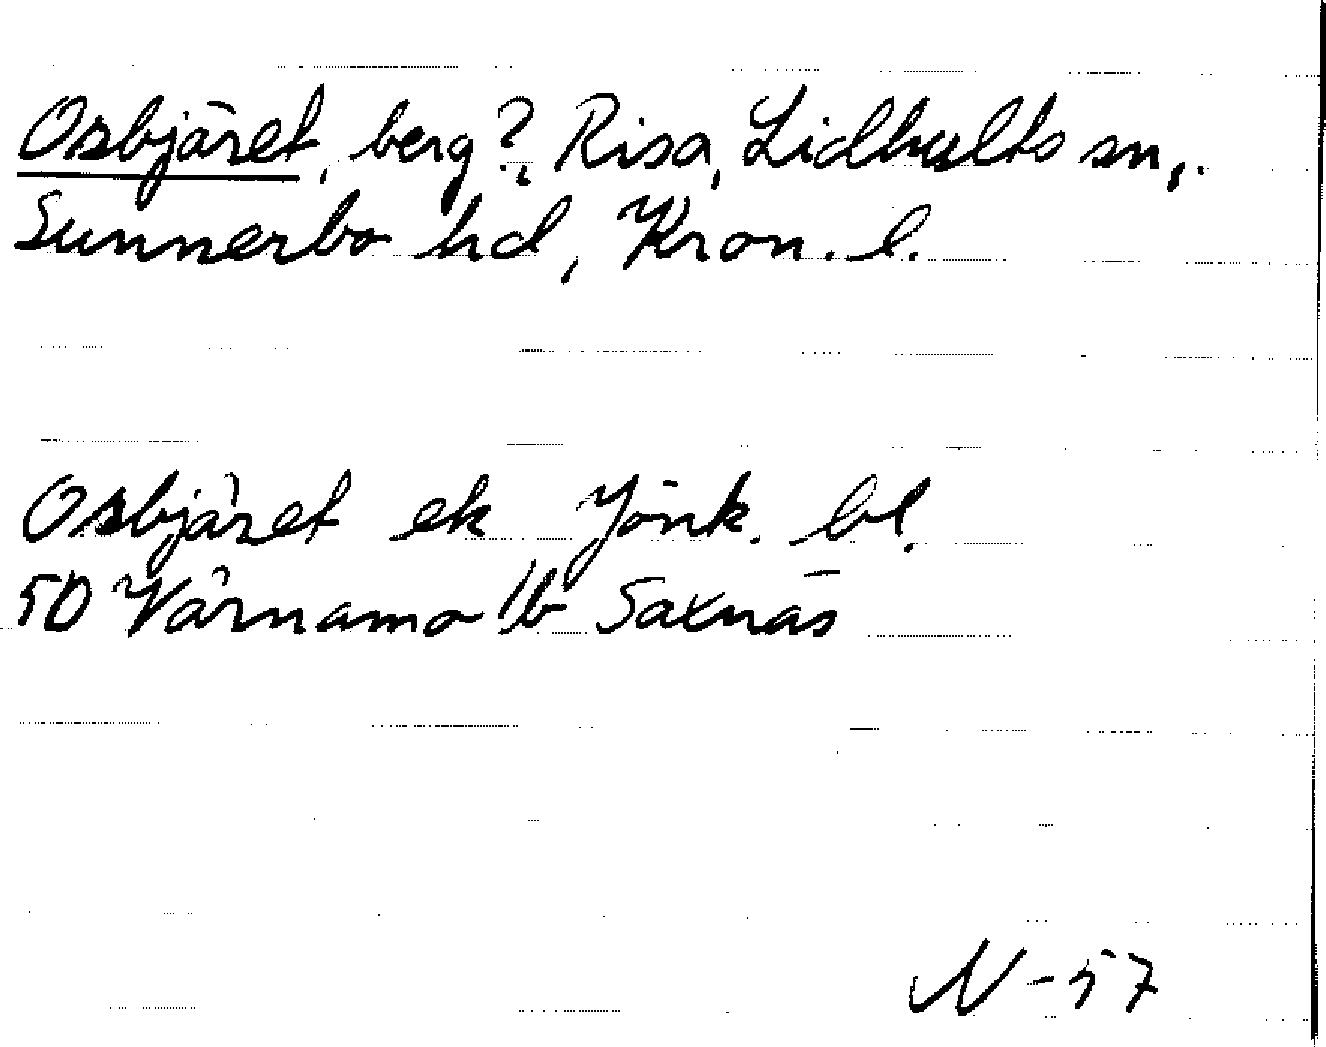 Osbjäret, berg?, Risa, Lidhults sn,
Sunnerbo hd, Kron. l.
Osbjäret ek Jönk. bl.
50 Värnamo 1b Saxnäs
N-57